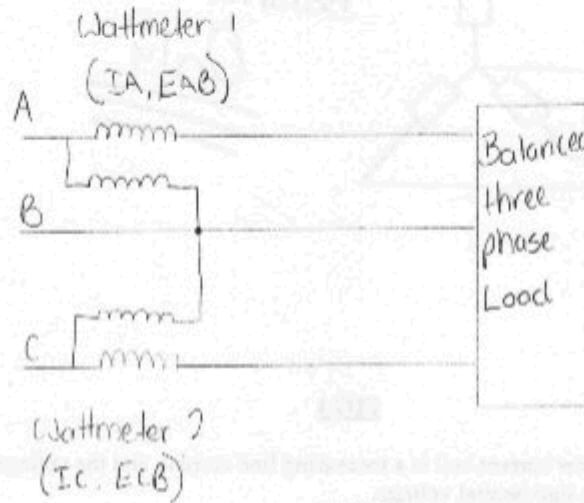 Wattmeter 1
(IA, EAB)
A
Balanced
three
phase
Load
B
C
Wattmeter 2
(IC. ECB)